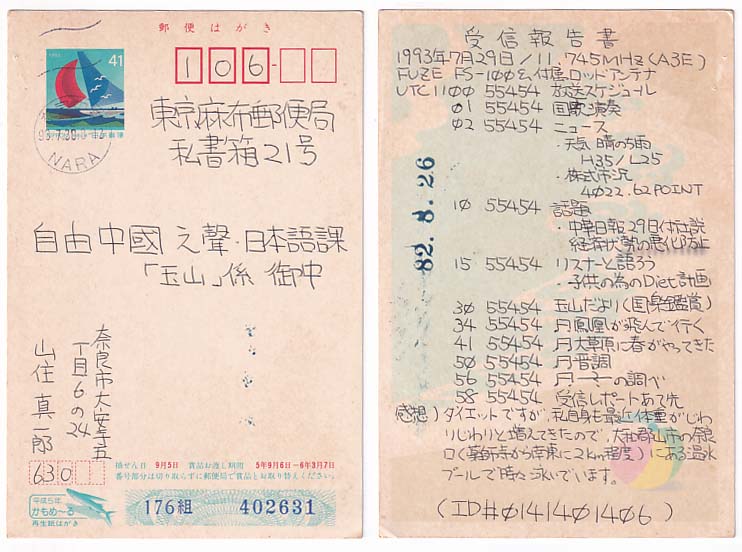 郵便はがき
41
106
NARA
東京麻布郵便局
私書箱21号
自由中國之聲・日本語課
「玉山」係 御中
奈良市大安寺五
丁目6の24
山住真一郎
630
抽せん日 9月5日 賞品お渡し期間 5年9月6日−6年3月7日
番号部分は切り取らずに郵便局で賞品とお取り替えください。
平成5年
かもめ〜る
再生紙はがき
176組 402631
受信報告書
1993年7月29日/11.745MHz(A3E)
FUZE FS-100& 付属ロッドアンテナ
UTC1100 55454 放送スケジュール
01 55454 国歌演奏
02 55454 ニュース
・天気 晴のち雨
H35/L25
・株式市況
4022.62POINT
10 55454 話題
中華日報29日付社説
経済大勢の悪化防止
15 55454 リスナーと語ろう
・子供の為のDiet計画
30 55454 玉山だより(国楽鑑賞)
34 55454 月鳳凰が飛んで行く
41 55454 月大草原に春がやってきた
50 55454 月晋調
56 55454 の調べ
58 55454 受信レポートあて先
感想)ダイエットですが、私自身も最近体重がじわ
りじわりと増えてきたので、大和郡山市の奈良
口(薬師寺から南東に2km程度)にある温水
プールで時々泳いでいます。
(ID#0141401406)
82.8.26